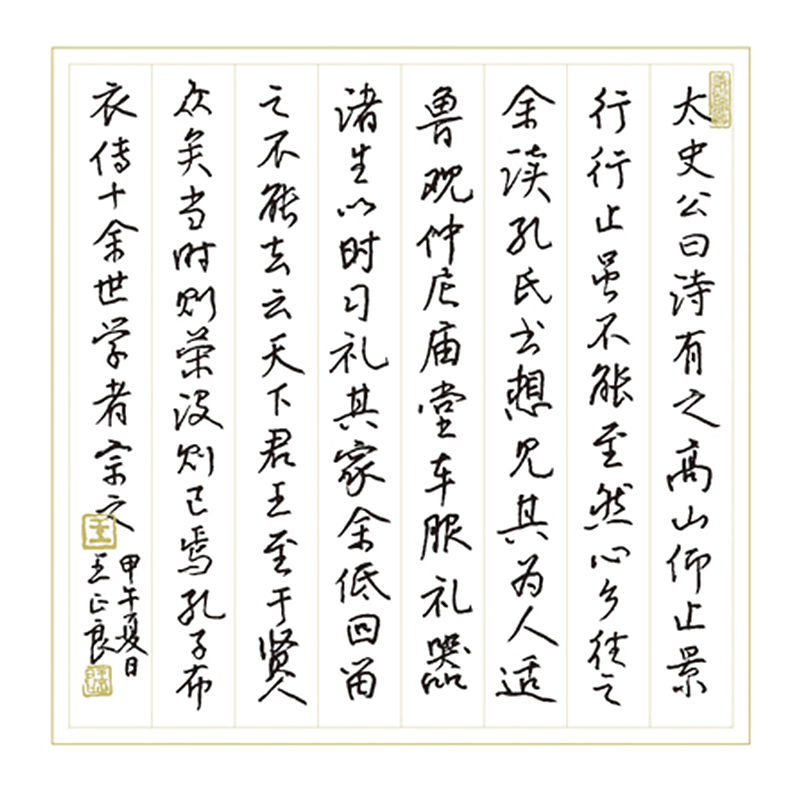 太史公曰诗有之高山仰止景
行行止虽不能至然心乡往之
余读孔氏书想见其为人适
鲁观仲尼庙堂车服礼器
诸生以时习礼其家余低回留
之不能去云天下君王至于贤人
众矣当时则荣没则已焉孔子布
衣传十余世学者宗之
甲午夏日
王正良
王